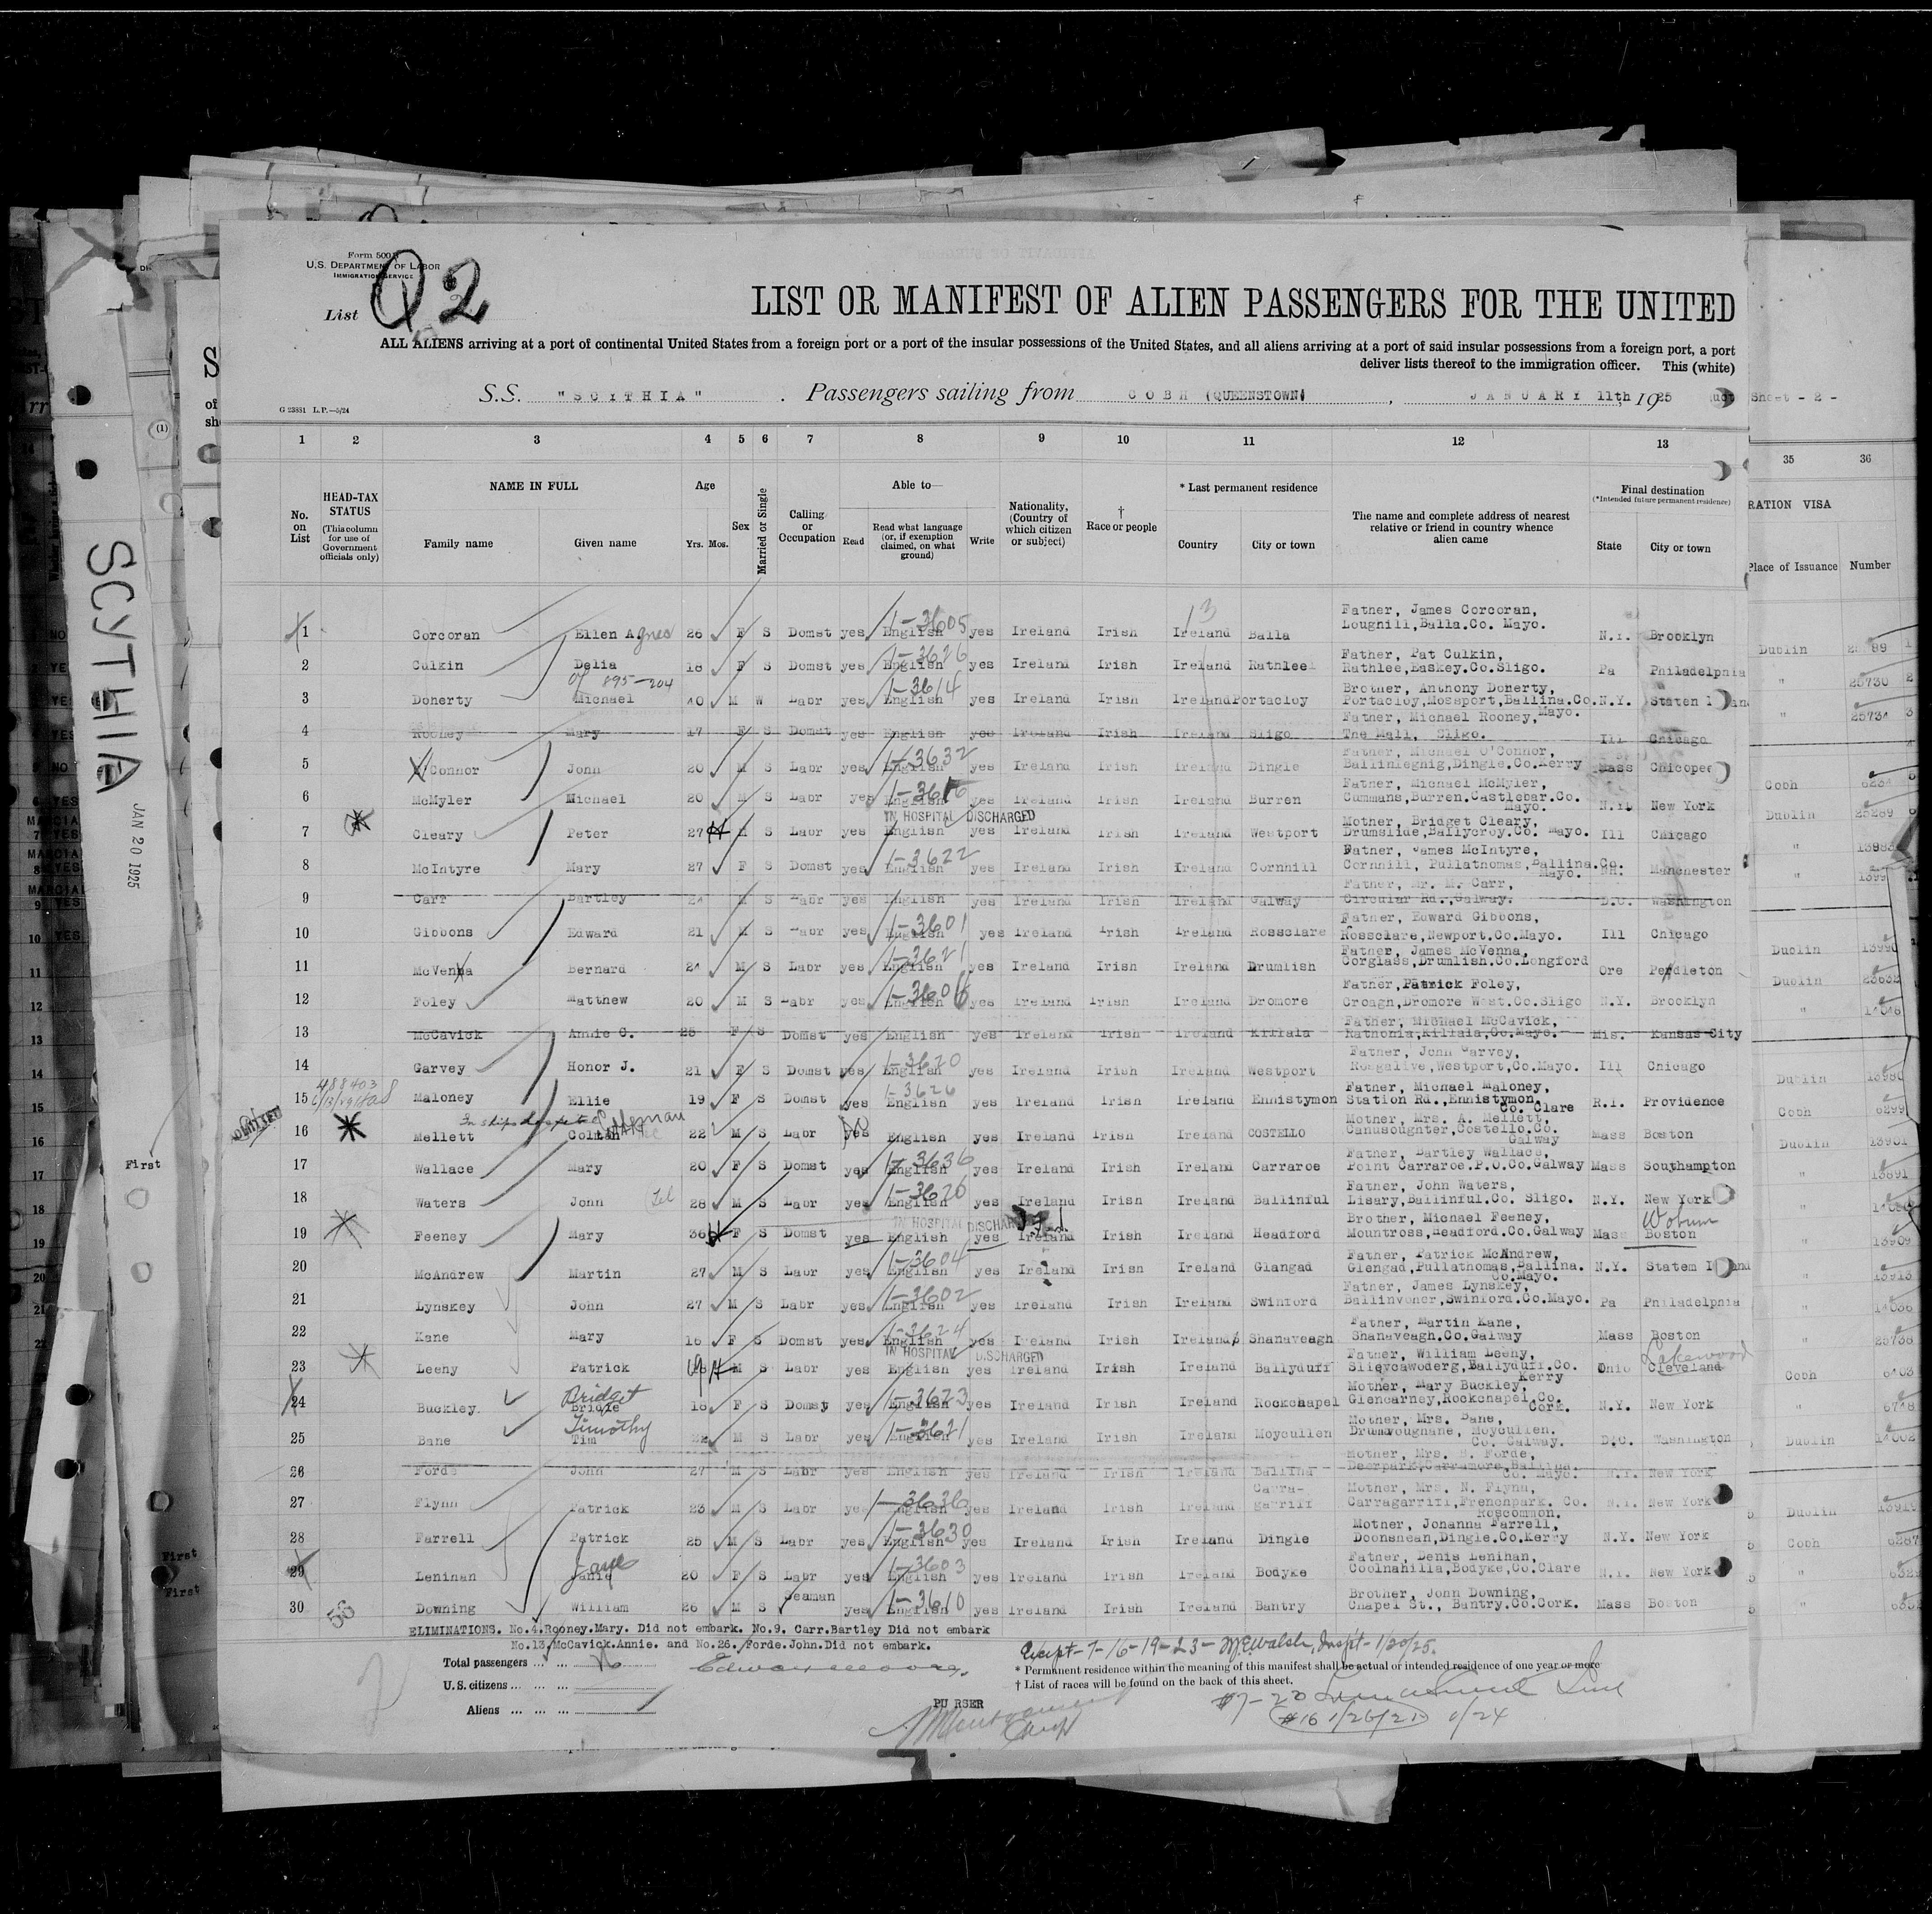 Form 500
U.S. DEPARTMENT OF LABOR
IMMIGRATION SERVICE
List 2
LIST OR MANIFEST OF ALIEN PASSENGERS FOR THE UNITED
ALL ALIENS arriving at a port of continental United States from a foreign port or a port of the insular possessions of the United States, and all aliens arriving at a port of said insular possessions from a foreign port, a port
deliver lists thereof to the immigration officer. This (white)
S.S. "SCYTHIA" . Passengers sailing from COBH (QUEENSTOWN) , JANUARY 11th, 1925
G 23881 L.P.—5/24
Sheet - 2 -
1 2 3 4 5 6 7 8 9 10 11 12 13 35 36
No. on List
HEAD-TAX STATUS (This column for use of Government officials only)
NAME IN FULL
Family name Given name
Age Yrs. Mos.
Sex
Married or Single
Calling or Occupation
Able to—
Read
Read what language (or, if exemption claimed, on what ground)
Write
Nationality, (Country of which citizen or subject)
† Race or people
* Last permanent residence
Country City or town
The name and complete address of nearest relative or friend in country whence alien came
Final destination
(*Intended future permanent residence)
State City or town
RATION VISA
Place of Issuance Number
SCYTHIA
JAN 20 1925
1 Corcoran Ellen Agnes 26 F S Domst yes English 1-3605 yes Ireland Irish Ireland Balla Father, James Corcoran, Loughill,Balla.Co. Mayo. N.Y. Brooklyn Dublin
2 Culkin Delia 18 F S Domst yes English 1-3626 yes Ireland Irish Ireland Rathlee Father, Pat Culkin, Rathlee,Easkey.Co.Sligo. Pa Philadelphia " 25730
of 895-204
3 Doherty Michael 40 M W Labr yes English 1-3614 yes Ireland Irish Ireland Portacloy Brother, Anthony Doherty, Portacloy,Mossport,Ballina.Co. Mayo. N.Y. Staten " 25734
4 Rooney Mary 17 F S Domst yes English yes Ireland Irish Ireland Sligo Father, Michael Rooney, The Mall, Sligo. Ill Chicago
5 O'Connor John 20 M S Labr yes English 1-3632 yes Ireland Irish Ireland Dingle Father, Michael O'Connor, Ballinleghig,Dingle.Co.Kerry Mass Chicopee Cobh
6 McMyler Michael 20 M S Labr yes English yes Ireland Irish Ireland Burren Father, Michael McMyler, Cummans,Burren.Castlebar.Co. Mayo. N.Y. New York Dublin 25289
IN HOSPITAL DISCHARGED
7 Cleary Peter 27 M S Labr yes English yes Ireland Irish Ireland Westport Mother, Bridget Cleary, Drumslide,Ballycroy.Co. Mayo. Ill Chicago "
8 McIntyre Mary 27 F S Domst yes English 1-3622 yes Ireland Irish Ireland Cornhill Father, James McIntyre, Cornhill, Pullathomas,Ballina.Co. Mayo. NH. Manchester "
9 Carr Bartley 24 M S Labr yes English yes Ireland Irish Ireland Galway Father, Mr. M. Carr, Circular Rd.,Galway. D.C. Washington
10 Gibbons Edward 21 M S Labr yes English 1-3601 yes Ireland Irish Ireland Rossclare Father, Edward Gibbons, Rossclare,Newport.Co.Mayo. Ill Chicago Dublin 13990
11 McVenna Bernard 24 M S Labr yes English 1-3621 yes Ireland Irish Ireland Drumlish Father, James McVenna, Corglass,Drumlish.Co.Longford Ore Pendleton Dublin 23632
12 Foley Matthew 20 M S Labr yes English yes Ireland Irish Ireland Dromore Father,Patrick Foley, Croagh,Dromore West.Co.Sligo N.Y. Brooklyn " 14046
13 McCavick Annie C. 25 F S Domst yes English yes Ireland Irish Ireland Killala Father, Michael McCavick, Rathonia,Killala,Co.Mayo. Mis. Kansas City
14 Garvey Honor J. 21 F S Domst yes English 1-3620 yes Ireland Irish Ireland Westport Father, John Garvey, Rosgalive,Westport,Co.Mayo. Ill Chicago Dublin 13980
15 Maloney Ellie 19 F S Domst yes English 1-3626 yes Ireland Irish Ireland Ennistymon Father, Michael Maloney, Station Rd.,Ennistymon, Co. Clare R.I. Providence Cobh 6299
16 Mellett Colman 22 M S Labr yes English yes Ireland Irish Ireland COSTELLO Mother, Mrs. A. Mellett, Canusoughter,Costello.Co. Galway Mass Boston Dublin 13901
17 Wallace Mary 20 F S Domst yes English 1-3636 yes Ireland Irish Ireland Carraroe Father, Bartley Wallace, Point Carraroe.P.O.Co.Galway Mass Southampton " 13891
18 Waters John 28 M S Labr yes English 1-3626 yes Ireland Irish Ireland Ballinful Father, John Waters, Lisary,Ballinful.Co. Sligo. N.Y. New York "
IN HOSPITAL DISCHARGED
19 Feeney Mary 36 F S Domst yes English yes Ireland Irish Ireland Headford Brother, Michael Feeney, Mountross,Headford.Co.Galway Mass Woburn Boston " 13909
20 McAndrew Martin 27 M S Labr yes English 1-3604 yes Ireland Irish Ireland Glangad Father, Patrick McAndrew, Glengad,Pullathomas,Ballina. Co.Mayo. N.Y. Statem " 13913
21 Lynskey John 27 M S Labr yes English 1-3602 yes Ireland Irish Ireland Swinford Father, James Lynskey, Ballinvoher,Swinford.Co.Mayo. Pa Philadelphia " 14036
22 Kane Mary 18 F S Domst yes English 1-3624 yes Ireland Irish Ireland Shanaveagh Father, Martin Kane, Shanaveagh.Co.Galway Mass Boston " 25736
IN HOSPITAL DISCHARGED
23 Leehy Patrick 19 M S Labr yes English yes Ireland Irish Ireland Ballyduff Father, William Leehy, Slieycawoderg,Ballyduff.Co. Kerry Ohio Lakewood Cleveland Cobh 6403
24 Buckley Bridget Bridie 18 F S Domst yes English 1-3623 yes Ireland Irish Ireland Rockchapel Mother, Mary Buckley, Glencarney,Rockchapel.Co. Cork. N.Y. New York " 6748
25 Bane Timothy Tim 22 M S Labr yes English 1-3621 yes Ireland Irish Ireland Moycullen Mother, Mrs. Bane, Drumavougnane, Moycullen. Co. Galway. D.C. Washington Dublin 14002
26 Forde John 27 M S Labr yes English yes Ireland Irish Ireland Ballina Mother, Mrs. Forde, Deerpark,Carramore,Ballina. Co. Mayo. N.Y. New York
27 Flynn Patrick 23 M S Labr yes English 1-3636 yes Ireland Irish Ireland Carra-garriff Mother, Mrs. N. Flynn, Carragarriff,Frenchpark. Co. Roscommon. N.Y. New York Dublin 13919
28 Farrell Patrick 25 M S Labr yes English 1-3630 yes Ireland Irish Ireland Dingle Mother, Johanna Farrell, Doonshean,Dingle.Co.Kerry N.Y. New York Cobh 6287
29 Lenihan Jane Janie 20 F S Labr yes English 1-3603 yes Ireland Irish Ireland Bodyke Father, Denis Lenihan, Coolnahilla,Bodyke,Co.Clare N.Y. New York "
30 Downing William 26 M S Seaman yes English 1-3610 yes Ireland Irish Ireland Bantry Brother, John Downing, Chapel St., Bantry.Co.Cork. Mass Boston "
ELIMINATIONS. No.4.Rooney.Mary. Did not embark. No.9. Carr.Bartley Did not embark
No.13.McCavick.Annie. and No.26. Forde.John.Did not embark.
Except-7-16-19-23- Insp't-1/20/25.
Total passengers ... ...
U.S. citizens ... ... ...
Aliens ... ... ...
* Permanent residence within the meaning of this manifest shall be actual or intended residence of one year or more
† List of races will be found on the back of this sheet.
PURSER
First
First
First